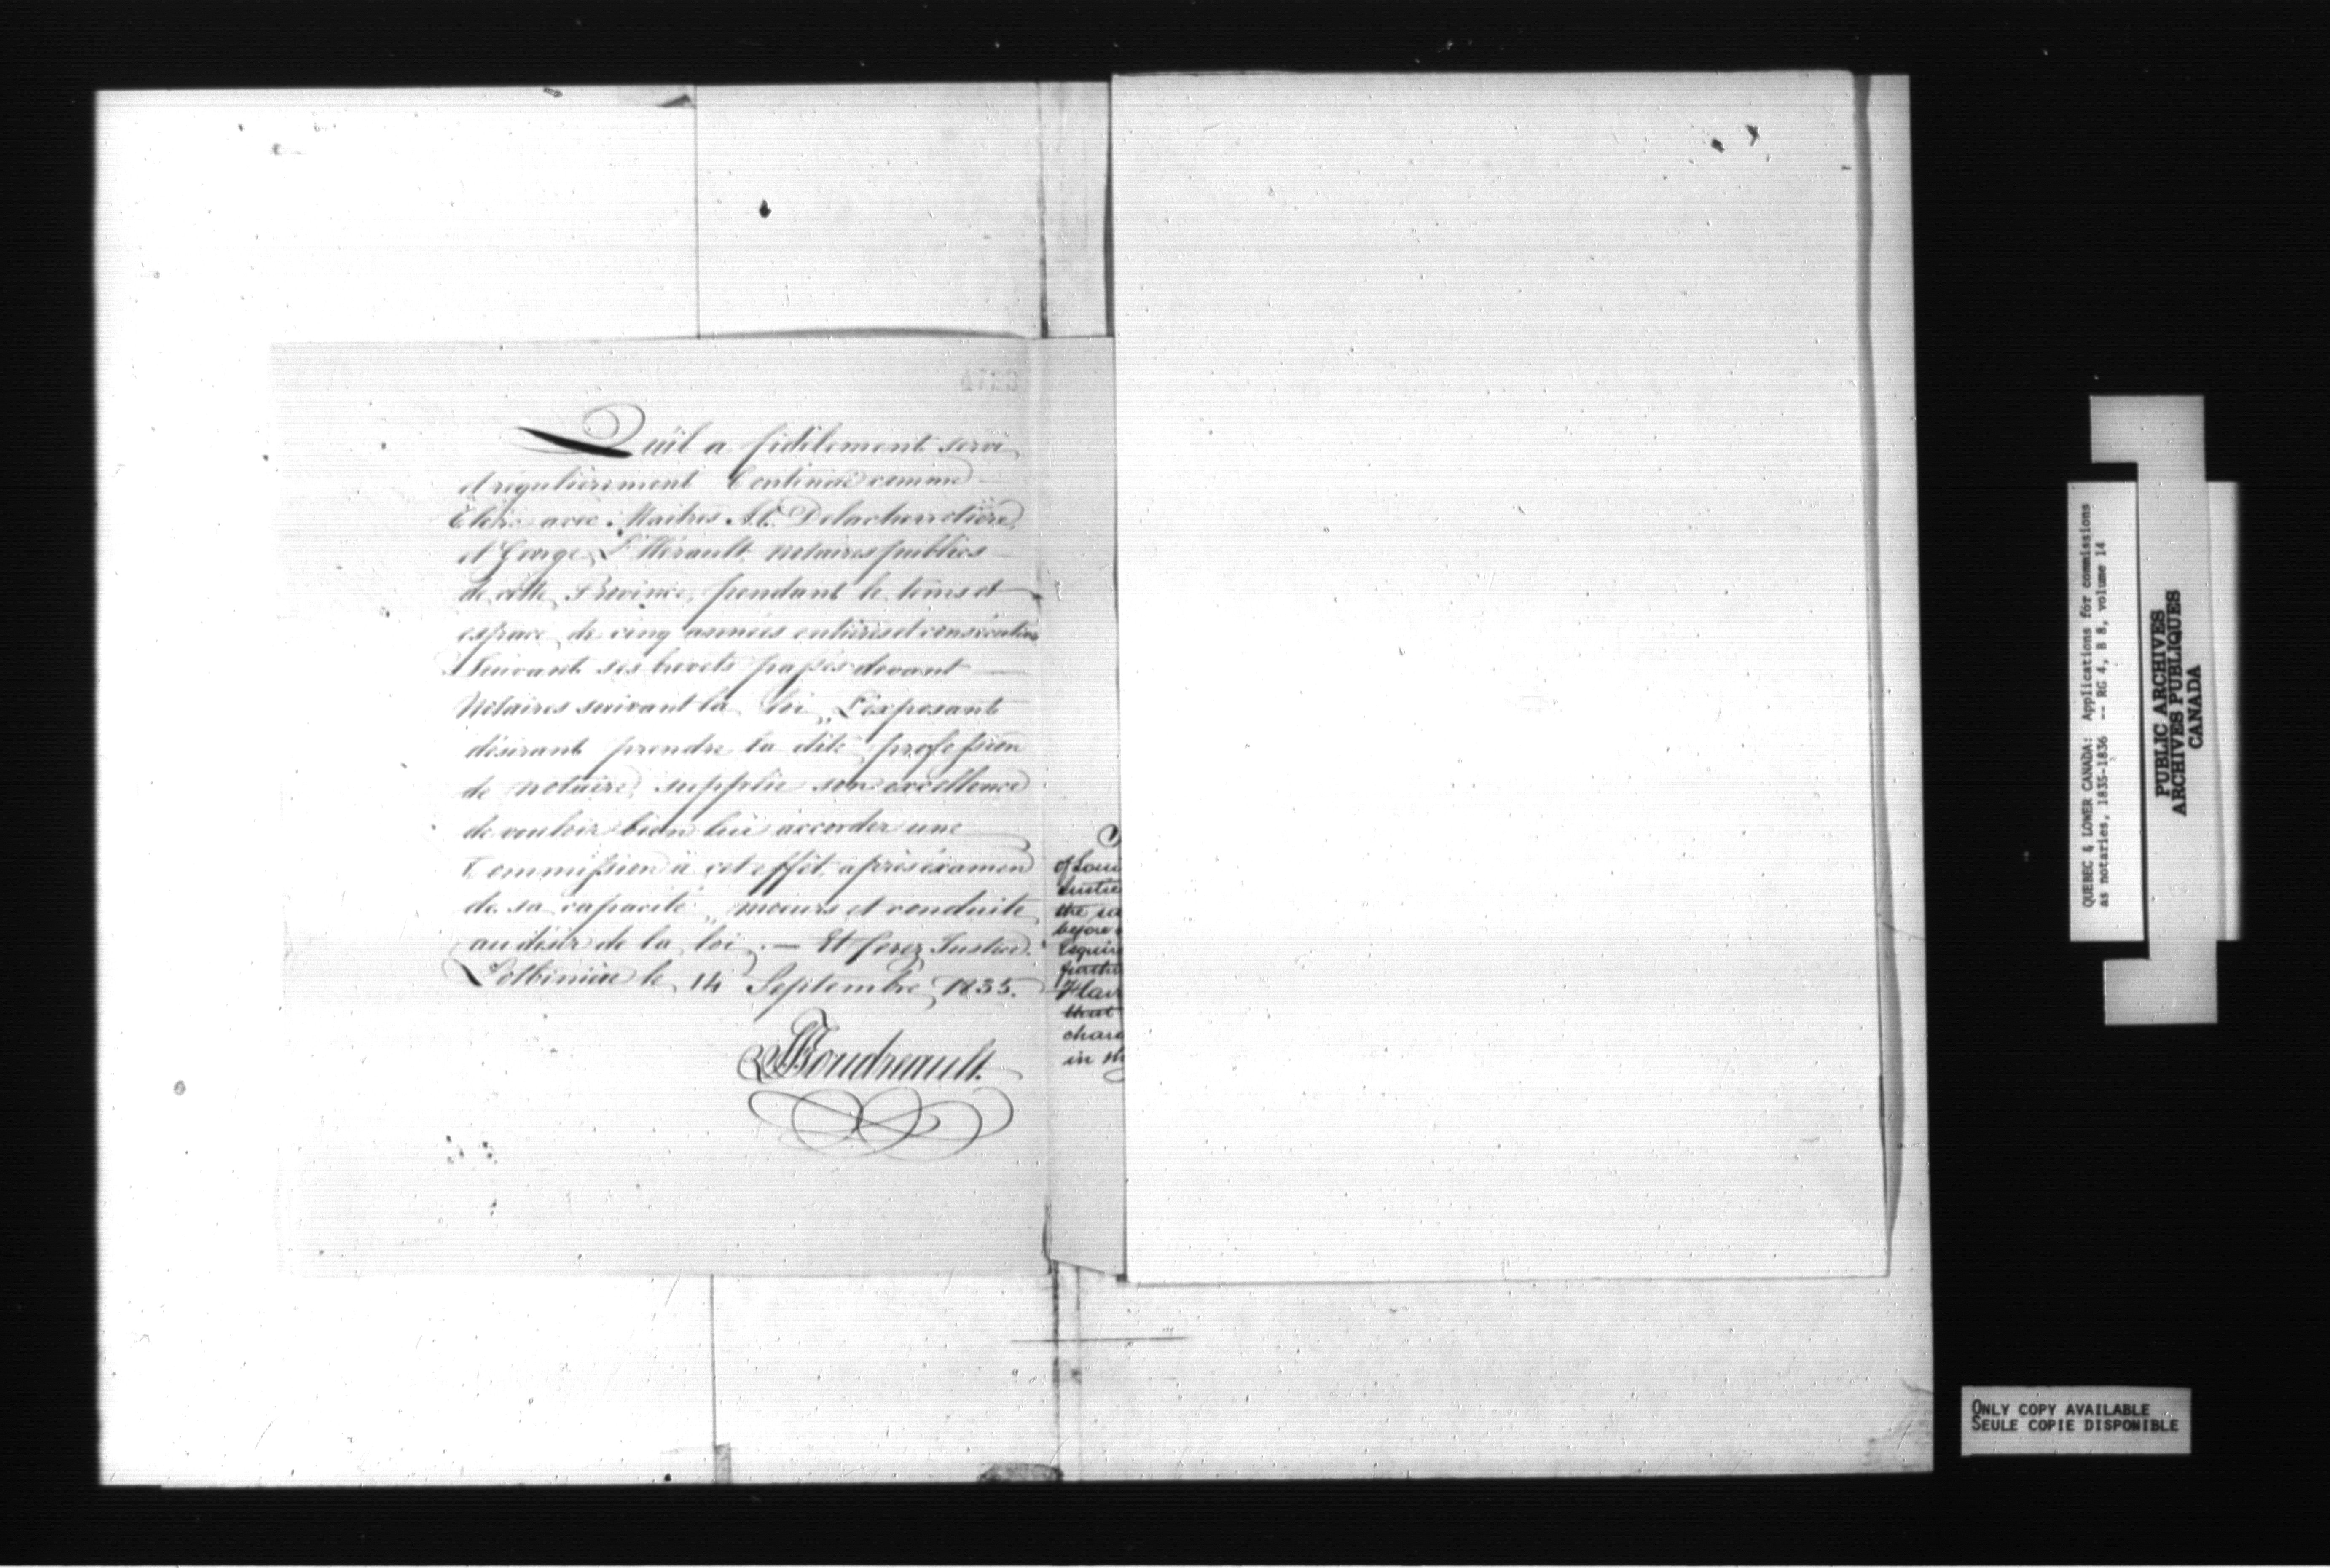 Qu'il a fidèlement servi
et régulièrement Continué comme
Clerc avec Maitres A. C. Delachevrotière,
et George L'Hérault, notaires publics
de cette Province, pendant le tems et
espace de cinq années entières et consécutives
Suivant ses brevets passés devant
Notaires suivant la loi, L'exposant
désirant prendre la dite profession
de notaire, supplie son excellence
de vouloir bien lui accorder une
Commission à cet effêt, après éxamen
de sa capacité, moeurs et conduite,
au désir de la loi. — Et ferez Justice.
Lotbinière le 14 Septembre, 1835.
Boudreault.
of Loui
the sa
before
Esquire
that
chara
in th
QUEBEC & LOWER CANADA: Applications for commissions
as notaries, 1835-1836 -- RG 4, B 8, volume 14
PUBLIC ARCHIVES
ARCHIVES PUBLIQUES
CANADA
ONLY COPY AVAILABLE
SEULE COPIE DISPONIBLE